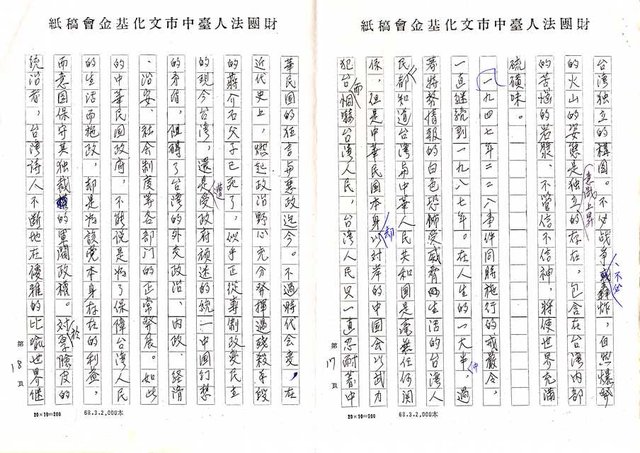 財團法人臺中市文化基金會稿紙
台灣獨立的構圖。不必戰爭轟炸，自然爆發
意識上昇
的火山的姿態是獨立的存在，包含在台灣內部
的苦悶的岩漿，不管信不信神，將使世界充滿
硫磺味。
一九四七年二二八事件同時施行的戒嚴令，
一直延續到一九八七年。在人生的一大半，過
著特務情報的白色恐怖受威脅的生活的台灣人
民都知道台灣與中華人民共和國是毫無任何關
係，但是中華民國本身卻以對岸的中國會以武力
犯台而恫嚇台灣人民，台灣人民只一直忍耐著中
第17頁
20×10=200
68.3.2,000本
財團法人臺中市文化基金會稿紙
華民國的狂言與惡政迄今。不過時代會變，在
近代史上，燃起政治野心充分發揮過殘殺手段
的蔣介石父子已死了，似乎正從專制改變民主
的現今台灣，還是遭受政府的統一中國幻想
的矛盾，阻礙了台灣的外交政治，內政、經濟
、治安、社會制度等各部門的正常發展。如此
的中華民國政府，不能說是為了保障台灣人民
的生活而施政，卻是為該黨本身存在的利益，
而意圖保守其獨裁的軍閥政權。對於的
統治者，台灣詩人不斷地在優雅的比喻世界繼
第18頁
20×10=200
68.3.2,000本